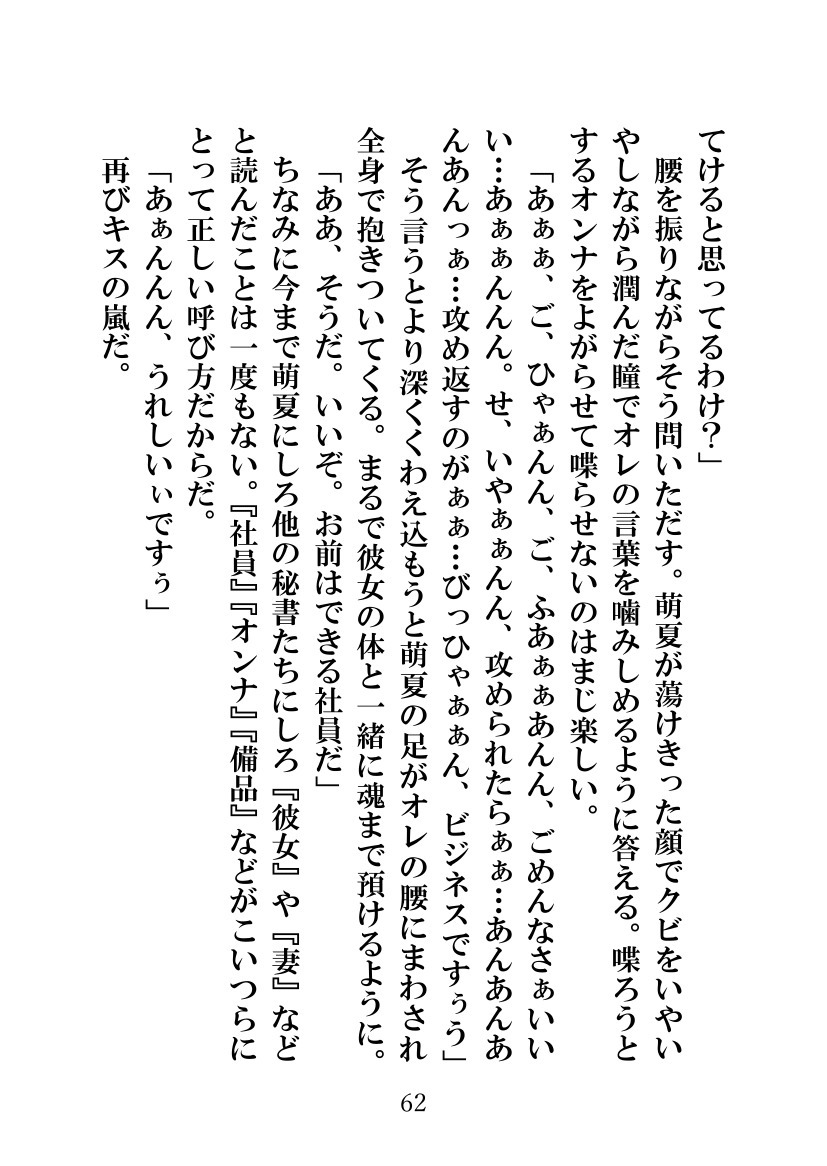 てけると思ってるわけ？」
腰を振りながらそう問いただす。萌夏が蕩けきった顔でクビをいやい
やしながら潤んだ瞳でオレの言葉を噛みしめるように答える。喋ろうと
するオンナをよがらせて喋らせないのはまじ楽しい。
「あぁぁ、ご、ひゃぁんん、ご、ふあぁぁあんん、ごめんなさぁいい
い…あぁぁんんん。せ、いやぁぁんん、攻められたらぁぁ…あんあんあ
んあんっぁ…攻め返すのがぁぁ…びっひゃぁぁん、ビジネスですぅう」
そう言うとより深くくわえ込もうと萌夏の足がオレの腰にまわされ
全身で抱きついてくる。まるで彼女の体と一緒に魂まで預けるように。
「ああ、そうだ。いいぞ。お前はできる社員だ」
ちなみに今まで萌夏にしろ他の秘書たちにしろ『彼女』や『妻』など
と読んだことは一度もない。『社員』『オンナ』『備品』などがこいつらに
とって正しい呼び方だからだ。
「あぁんんん、うれしいぃですぅ」
再びキスの嵐だ。
62